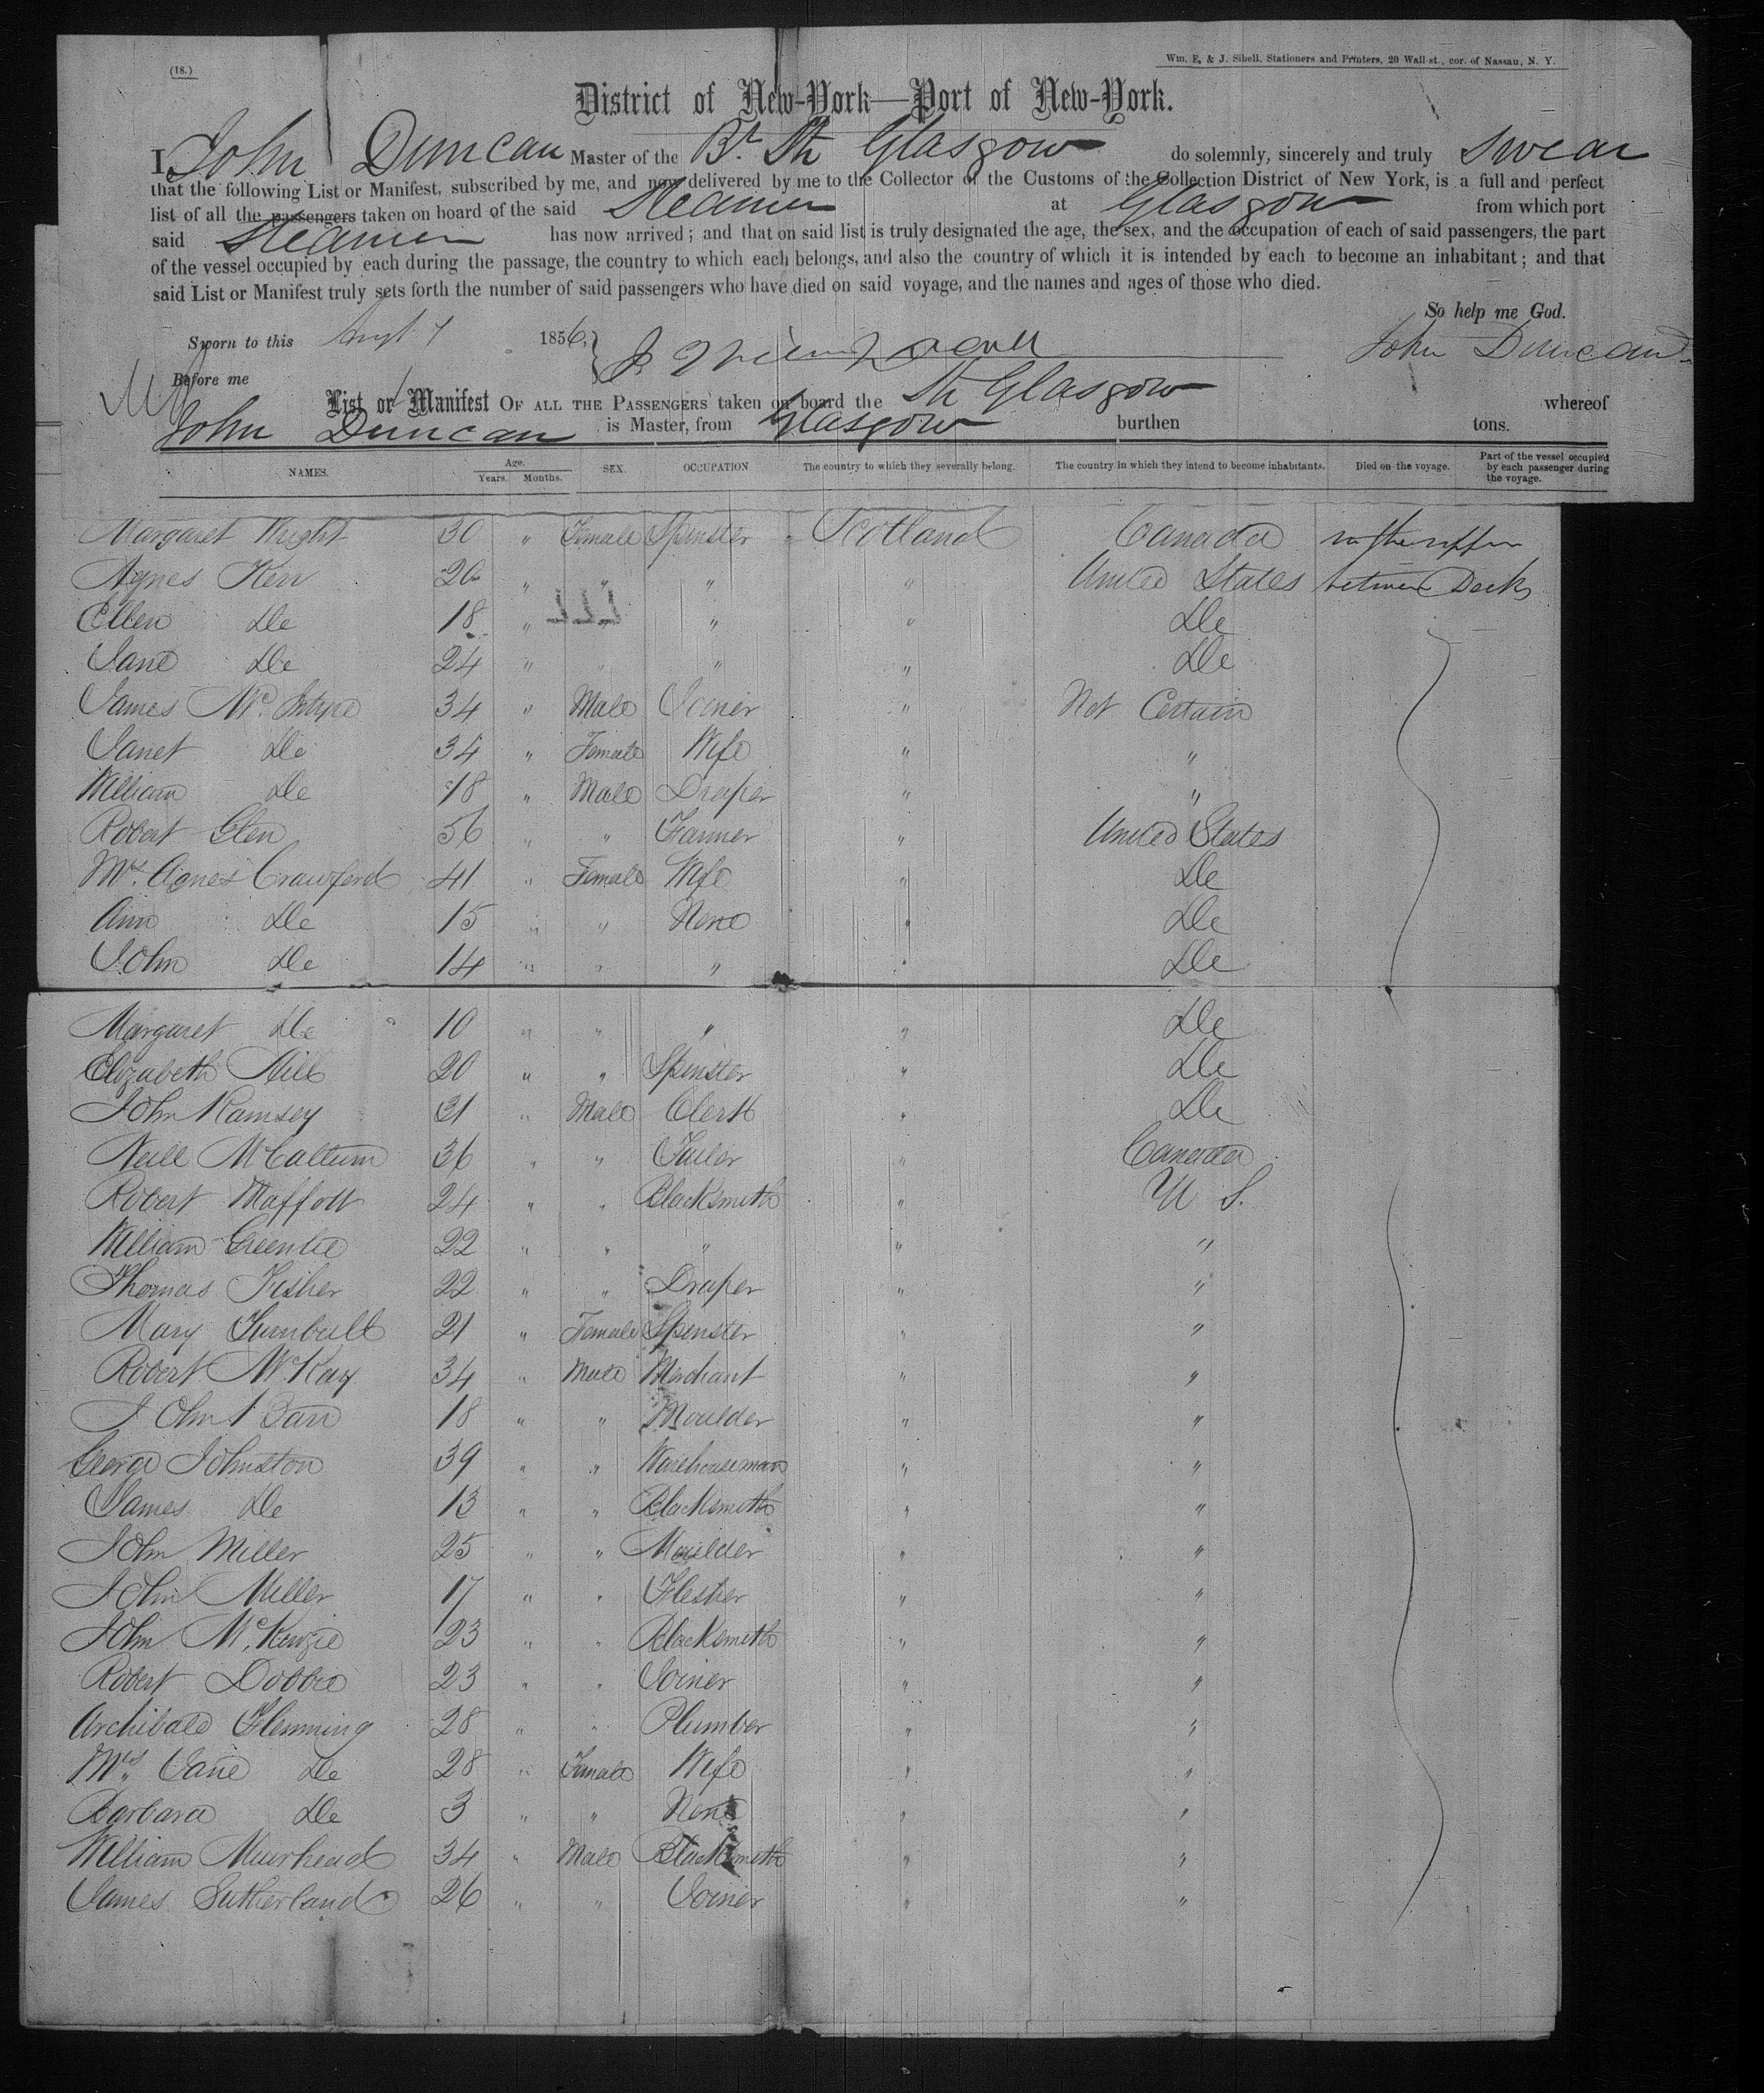 (18.)
Wm. E. & J. Sibell, Stationers and Printers, 20 Wall-st., cor. of Nassau, N. Y.
District of New-York—Port of New-York.
I, John Duncan Master of the Br. Str Glasgow do solemnly, sincerely and truly swear
that the following List or Manifest, subscribed by me, and now delivered by me to the Collector of the Customs of the Collection District of New York, is a full and perfect
list of all the passengers taken on board of the said Steamer at Glasgow from which port
said Steamer has now arrived; and that on said list is truly designated the age, the sex, and the occupation of each of said passengers, the part
of the vessel occupied by each during the passage, the country to which each belongs, and also the country of which it is intended by each to become an inhabitant; and that
said List or Manifest truly sets forth the number of said passengers who have died on said voyage, and the names and ages of those who died.
So help me God.
Sworn to this 7 1856, John Duncan
Before me
List or Manifest OF ALL THE PASSENGERS taken on board the Str Glasgow whereof
John Duncan is Master, from Glasgow burthen tons.
NAMES. Age. Years. Months. SEX. OCCUPATION The country to which they severally belong. The country in which they intend to become inhabitants. Died on the voyage. Part of the vessel occupied by each passenger during the voyage.
Margaret Wright 30 " Female Spinster Scotland Canada
Agnes Kerr 20 " " " " United States between Decks
Ellen Do 18 " " " Do
Jane Do 24 " " " " Do
James McIntyre 34 " Male Joiner " Not Certain
Janet Do 34 " Female Wife " "
William Do 18 " Male Draper " "
Robert Glen 56 " " Farmer " United States
Mrs. Agnes Crawford 41 " Female Wife " Do
Ann Do 15 " " None " Do
John Do 14 " " " " Do
Margaret Do 10 " " " " Do
Elizabeth Hill 20 " " Spinster " Do
John Ramsey 31 " Male Clerk " Do
Neill McCallum 36 " " Tailor " Canada
Robert Maffott 24 " " Blacksmith " U S.
William Greenlie 22 " " " " "
Thomas Fisher 22 " " Draper " "
Mary Turnbull 21 " Female Spinster " "
Robert McKay 34 " Male Merchant " "
John Barr 18 " " Moulder " "
George Johnston 39 " " Warehouseman " "
James Do 13 " " Blacksmith " "
John Miller 25 " " Moulder " "
John Miller 17 " " Flesher " "
John McKenzie 23 " " Blacksmith " "
Robert Dobbie 23 " " Joiner " "
Archibald Flemming 28 " " Plumber " "
Mrs. Jane Do 28 " Female Wife " "
Barbara Do 3 " " None " "
William Muirhead 34 " Male Blacksmith " "
James Sutherland 26 " " Joiner " "